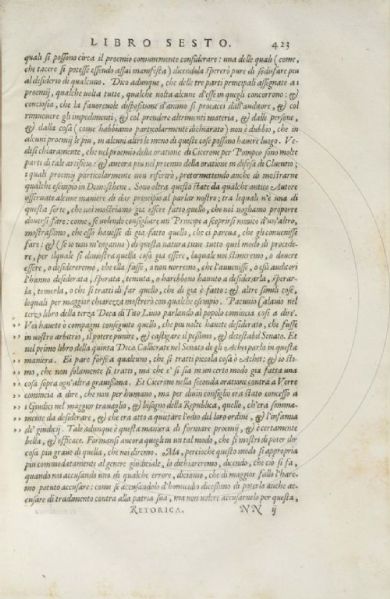 LIBRO SESTO. 423
quali si possono circa il proemio comunemente considerare: una delle quali (come,
che tacere si potesse essendo assai manifesta) dicendola spererò pure di sodisfare piu
al desiderio di qualcuno. Dico adunque, che delle tre parti principali assegnate a i
proemij, qualche volta tutte, qualche volta alcune d'esse in quegli concorrono: &
conciosia, che la favorevole disposizione d'animo si procacci dall'auditore, & col
rimuovere gli impedimenti, & col prendere altrimenti materia, & dalle persone,
& dalla cosa (come habbiamo particolarmente dichiarato) non è dubbio, che in
alcuni proemij le piu, in alcuni altri le meno di queste cose possino havere luogo. Ve-
desi chiaramente, che nel proemio della oratione di Cicerone per Pompeo sono molte
parti di tale artificio: & ancora piu nel proemio della oratione in difesa di Cluentio;
i quali proemij particolarmente non riferirò, pretermettendo anche di mostrarne
qualche esempio in Demosthene. Sono oltra questo state da qualche antico Autore
osservate alcune maniere di dar principio al parlar nostro; tra lequali n'è una di
questa sorte, che noi mostriamo già essere fatto quello, che noi vogliamo proporre
doversi fare: come, se volendo consigliare un Principe a scoprirsi nimico d'un'altro,
mostrassimo, che esso havesse di già fatto quello, che ci pareva, che gli convenisse
fare: & (se io non m'inganno) di questa natura sono tutti quei modi di procede-
re, per i quali si dimostra quella cosa già essere, laquale noi stimeremo, o dovere
essere, o desidereremo, che ella fusse, o non vorremo, che l'avenisse, o essi auditori
l'hanno desiderata, sperata, temuta, o harebbono havuto a desiderarla, sperar-
la, temerla, o che si tratti di far quello, che di già è fatto: & altre simili cose,
lequali per maggior chiarezza mostrerò con qualche esempio. Pacuvio Calavio nel
terzo libro della terza Deca di Tito Livio parlando al popolo comincia così a dire.
Voi havete ò compagni conseguito quello, che piu volte havete desiderato, che fusse
in vostro arbitrio, il potere punire, & castigare il pessimo, & detestabil Senato. Et
nel primo libro della quinta Deca Callicrate nel Senato de gli Achei parla in questa
maniera. Ei pare forse a qualcuno, che si tratti piccola cosa ò Achei; & io sti-
mo, che non solamente si tratti, ma che e' si sia in un certo modo già fatta una
cosa sopra ogn'altra gravissima. Et Cicerone nella seconda oratione contra a Verre
comincia a dire, che non per humano, ma per divin consiglio era stato concesso a
i Giudici nel maggior travaglio, & bisogno della Republica, quello, ch'era somma-
mente da desiderare, & che era atto a quietare l'odio del loro ordine, & l'infamia
de' giudicij. Tale adunque è questa maniera di formare proemij, & è certamente
bella, & efficace. Formansi ancora quegli in un tal modo, che si mostri di poter dir
cosa piu grave di quella, che noi diremo. Ma, percioche questo modo si appropria
piu commodatamente al genere giudiciale, lo dichiareremo, dicendo, che ciò si fa,
quando noi accusando uno di qualche errore, diciamo, che di maggior fallo l'hare-
mo potuto accusare: come se accusandolo d'homicidio dicessimo di poterlo anche ac-
cusare di tradimento contra alla patria sua, ma non volere accusarnelo per questa,
RETORICA. NN ij